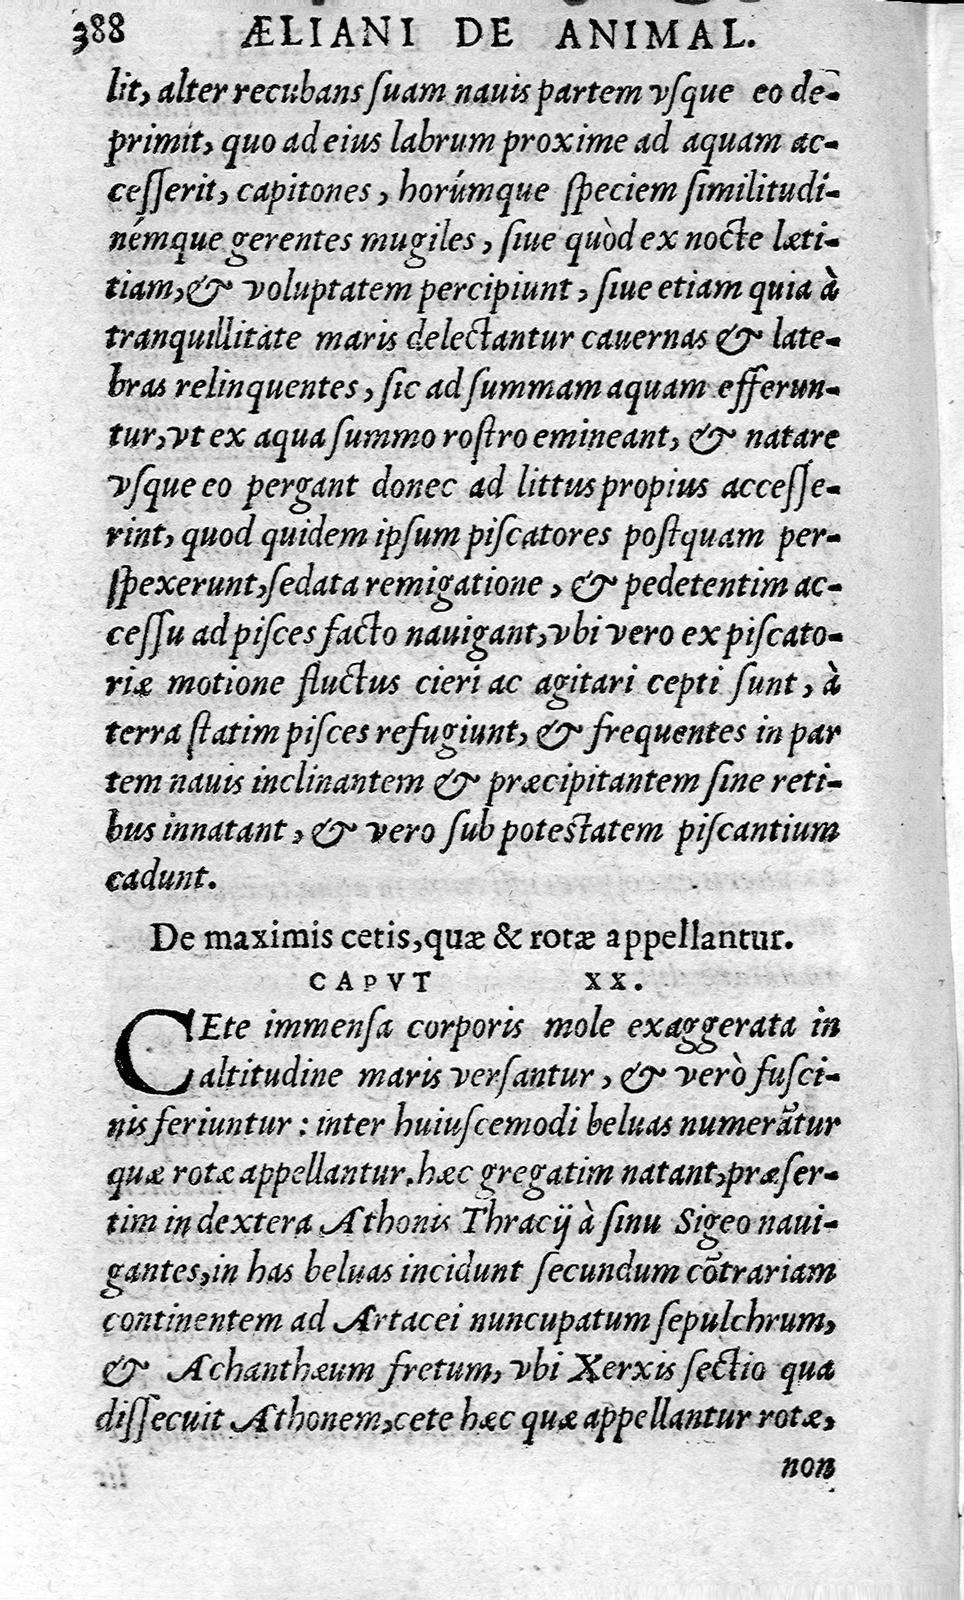 388 ÆLIANI DE ANIMAL.
lit, alter recubans ſuam nauis partem vſque eo de-
primit, quo ad eius labrum proxime ad aquam ac-
ceſſerit, capitones, horúmque ſpeciem ſimilitudi-
némque gerentes mugiles, ſiue quòd ex nocte læti-
tiam, & voluptatem percipiunt, ſiue etiam quia à
tranquillitate maris delectantur cauernas & late-
bras relinquentes, ſic ad ſummam aquam efferun-
tur, vt ex aqua ſummo roſtro emineant, & natare
vſque eo pergant donec ad littus propius acceſſe-
rint, quod quidem ipſum piſcatores poſtquam per-
ſpexerunt, ſedata remigatione, & pedetentim ac-
ceſſu ad piſces facto nauigant, vbi vero ex piſcato-
riæ motione fluctus cieri ac agitari cepti ſunt, à
terra ſtatim piſces refugiunt, & frequentes in par
tem nauis inclinantem & præcipitantem ſine reti-
bus innatant, & vero ſub poteſtatem piſcantium
cadunt.
De maximis cetis, quæ & rotæ appellantur.
CAPVT XX.
CEte immenſa corporis mole exaggerata in
altitudine maris verſantur, & verò fuſci-
nis feriuntur: inter huiuſcemodi beluas numerātur
quæ rotæ appellantur. hæc gregatim natant, præſer-
tim in dextera Athonis Thracij à ſinu Sigeo naui-
gantes, in has beluas incidunt ſecundum cōtrariam
continentem ad Artacei nuncupatum ſepulchrum,
& Achanthæum fretum, vbi Xerxis ſectio qua
diſſecuit Athonem, cete hæc quæ appellantur rotæ,
non